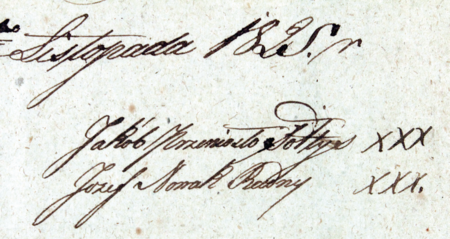 Listopada 1825. r
Jakób Krzemiosło Sołtys XXX
Józef Nowak Radny XXX.